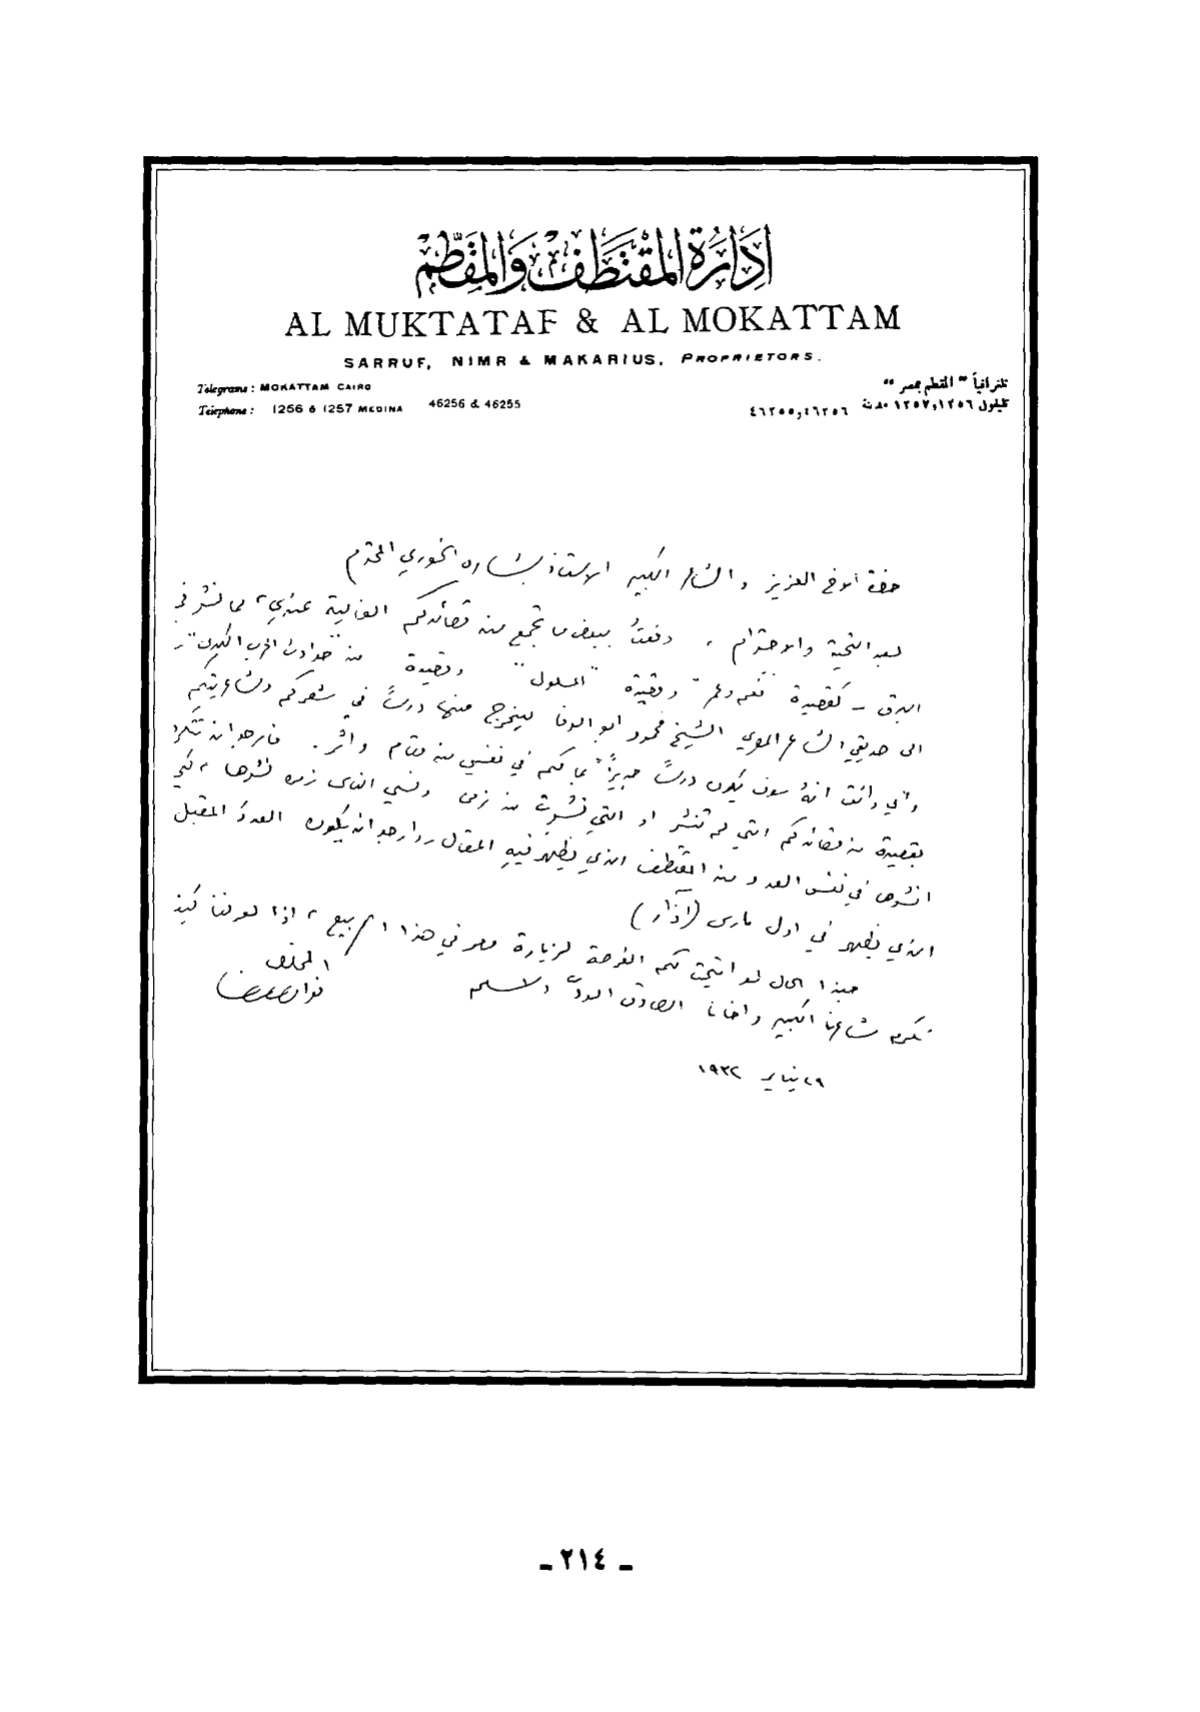 إدارة المقتطف والمقطم
AL MUKTATAF & AL MOKATTAM
SARRUF, NIMR & MAKARIUS, PROPRIETORS.
Telegrams: MOKATTAM CAIRO
تلغرافياً "المقطم بمصر"
Telephone: 1256 & 1257 MEDINA 46256 & 46255
تليفون ١٢٥٦و١٢٥٧ مدينة ٤٦٢٥٦و٤٦٢٥٥
حضرة الاخ العزيز والشاعر الكبير الاستاذ بشاره الخوري المحترم
بعد التحية والاحترام، دفعتُ ببعض ما تجمع من قصائدكم الغالية عندي، مما نشر في
البرق – كقصيدة وقصيدة "المسلول" وقصيدة من "حوادث الحرب الكبرى" –
الى صديقي الشاعر الشيخ محمود ابو الوفا ليخرج منها درساً في شعركم وشاعريتكم
واني واثق انهُ سوف يكون درساً جديراً بما لكم في نفسي من مقام واثر. فارجو ان تتكرموا
بقصيدة من قصائدكم التي لم تنشر او التي نشرت من زمن ونسي الناس زمن نشرها، لكي
انشرها في نفس العدد من المقتطف الذي يظهر فيهِ المقال وارجو ان يكون العدد المقبل
الذي يظهر في اول مارس (آذار)
حبذا الحال لو اتيحت لكم الفرصة لزيارة مصر في هذا الربيع، اذاً لعرفنا كيف
نكرم شاعرنا الكبير واخانا الصادق الودّ، والسلام
المخلص
فؤاد صروف
٢٩ يناير ١٩٣٢
- ٢١٤ -